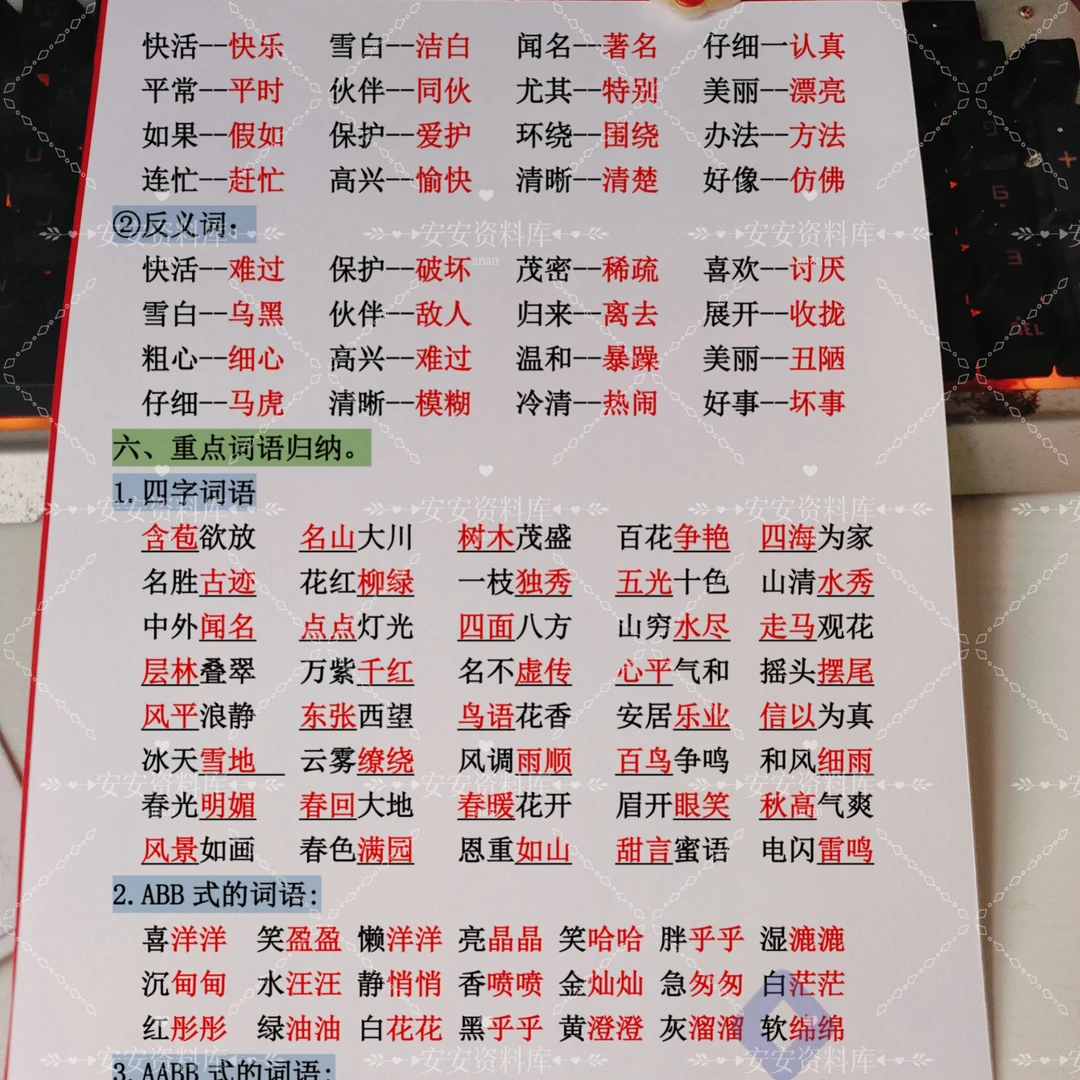 快活--快乐 雪白--洁白 闻名--著名 仔细一认真
平常--平时 伙伴--同伙 尤其--特别 美丽--漂亮
如果--假如 保护--爱护 环绕--围绕 办法--方法
连忙--赶忙 高兴--愉快 清晰--清楚 好像--仿佛
②反义词：
快活--难过 保护--破坏 茂密--稀疏 喜欢--讨厌
雪白--乌黑 伙伴--敌人 归来--离去 展开--收拢
粗心--细心 高兴--难过 温和--暴躁 美丽--丑陋
仔细--马虎 清晰--模糊 冷清--热闹 好事--坏事
六、重点词语归纳。
1.四字词语
含苞欲放 名山大川 树木茂盛 百花争艳 四海为家
名胜古迹 花红柳绿 一枝独秀 五光十色 山清水秀
中外闻名 点点灯光 四面八方 山穷水尽 走马观花
层林叠翠 万紫千红 名不虚传 心平气和 摇头摆尾
风平浪静 东张西望 鸟语花香 安居乐业 信以为真
冰天雪地 云雾缭绕 风调雨顺 百鸟争鸣 和风细雨
春光明媚 春回大地 春暖花开 眉开眼笑 秋高气爽
风景如画 春色满园 恩重如山 甜言蜜语 电闪雷鸣
2.ABB 式的词语:
喜洋洋 笑盈盈 懒洋洋 亮晶晶 笑哈哈 胖乎乎 湿漉漉
沉甸甸 水汪汪 静悄悄 香喷喷 金灿灿 急匆匆 白茫茫
红彤彤 绿油油 白花花 黑乎乎 黄澄澄 灰溜溜 软绵绵
3.AABB 式的词语:
安安资料库